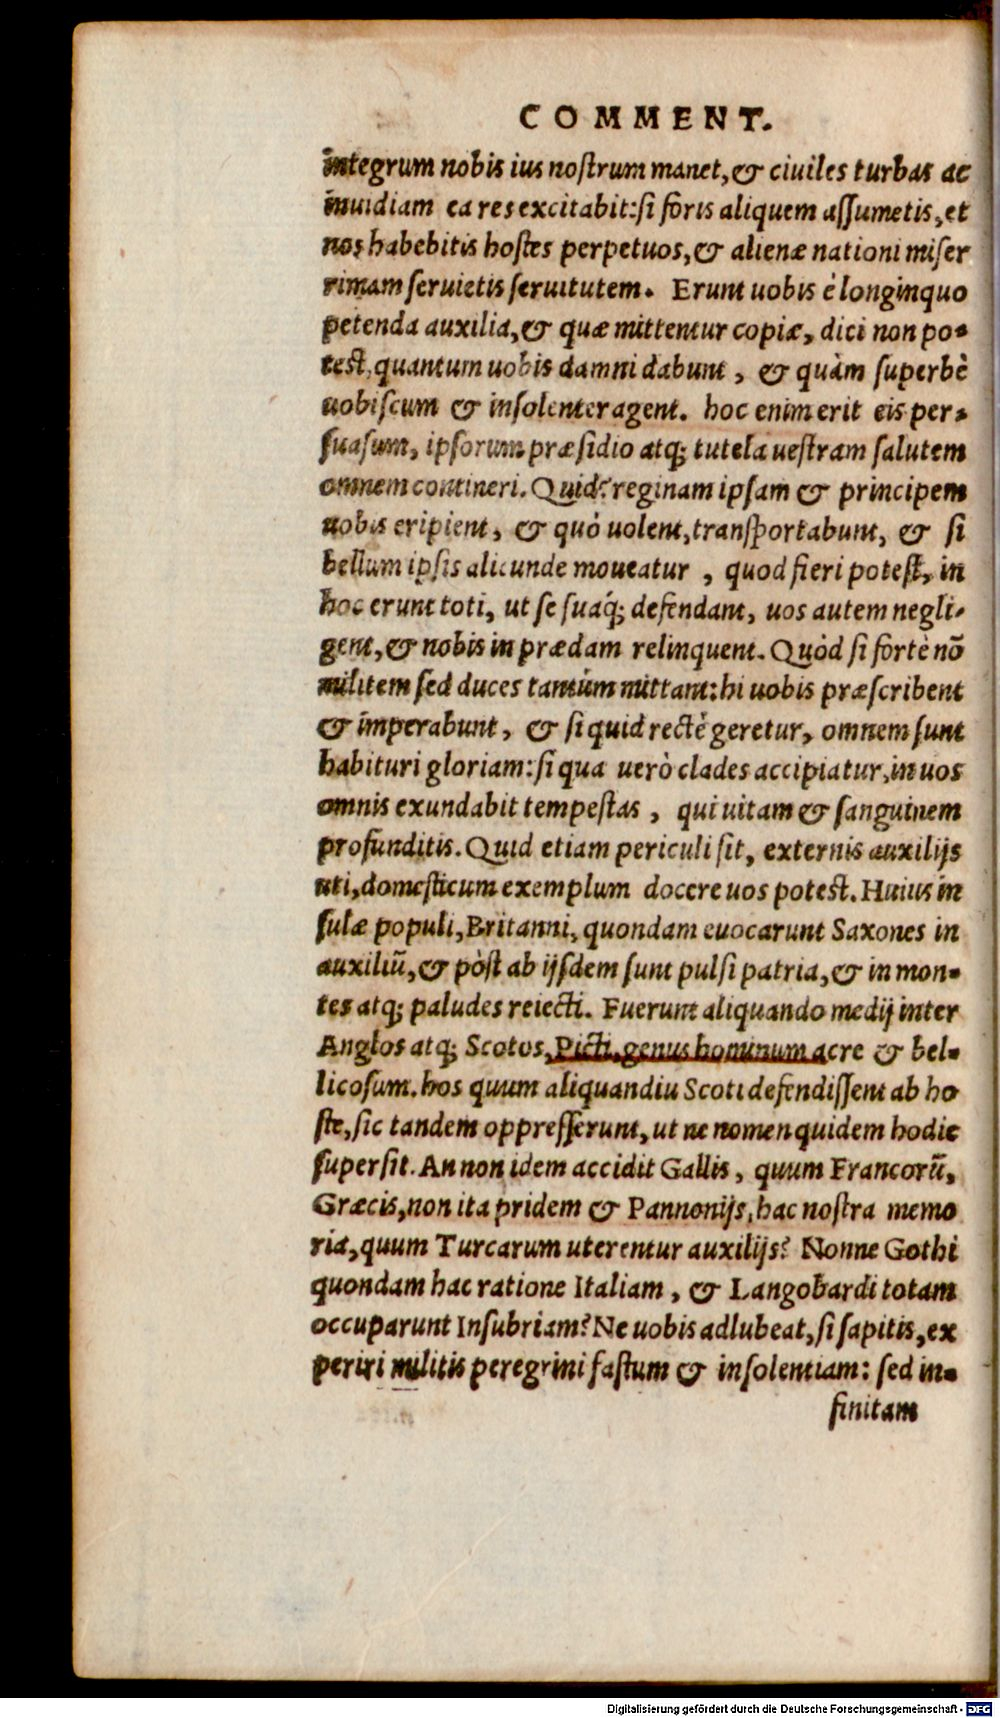 COMMENT.
integrum nobis ius nostrum manet, & ciuiles turbas ac
inuidiam ea res excitabit: si foris aliquem assumetis, et
nos habebitis hostes perpetuos, & alienæ nationi miser
rimam seruietis seruitutem. Erunt uobis è longinquo
petenda auxilia, & quæ mittentur copiæ, dici non po-
test, quantum uobis damni dabunt, & quàm superbè
uobiscum & insolenter agent. hoc enim erit eis per-
suasum, ipsorum præsidio atq; tutela uestram salutem
omnem contineri. Quid? reginam ipsam & principem
uobis eripient, & quò uolent, transportabunt, & si
bellum ipsis alicunde moueatur, quod fieri potest, in
hoc erunt toti, ut se suaq́; defendant, uos autem negli-
gent, & nobis in prædam relinquent. Quòd si fortè nõ
militem sed duces tantùm mittant: hi uobis præscribent
& imperabunt, & si quid rectè geretur, omnem sunt
habituri gloriam: si qua uerò clades accipiatur, in uos
omnis exundabit tempestas, qui uitam & sanguinem
profunditis. Quid etiam periculi sit, externis auxilijs
uti, domesticum exemplum docere uos potest. Huius in
sulæ populi, Britanni, quondam euocarunt Saxones in
auxiliũ, & pòst ab ijsdem sunt pulsi patria, & in mon-
tes atq; paludes reiecti. Fuerunt aliquando medij inter
Anglos atq; Scotos, Picti, genus hominum acre & bel-
licosum. hos quum aliquandiu Scoti defendissent ab ho
ste, sic tandem oppresserunt, ut ne nomen quidem hodie
supersit. An non idem accidit Gallis, quum Francorũ,
Græcis, non ita pridem & Pannonijs, hac nostra memo
ria, quum Turcarum uterentur auxilijs? Nonne Gothi
quondam hac ratione Italiam, & Langobardi totam
occuparunt Insubriam? Ne uobis adlubeat, si sapitis, ex
periri militis peregrini fastum & insolentiam: sed in-
finitam
Digitalisierung gefördert durch die Deutsche Forschungsgemeinschaft - DFG